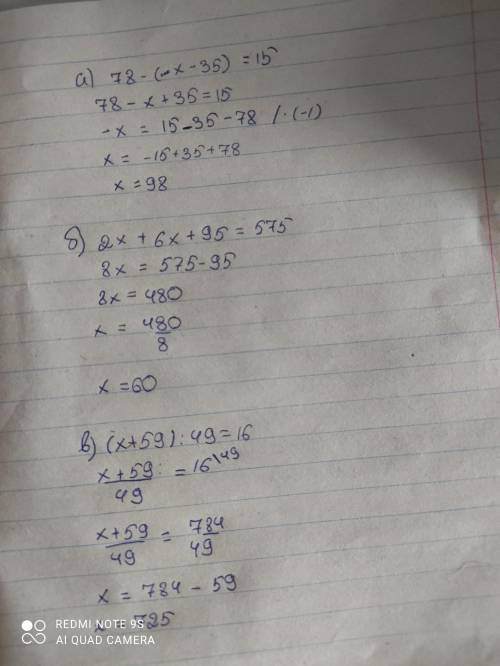 а) 78 - (-x - 35) = 15
78 - x + 35 = 15
-x = 15 - 35 - 78 / · (-1)
x = -15 + 35 + 78
x = 98
б) 2x + 6x + 95 = 575
8x = 575 - 95
8x = 480
x = 480/8
x = 60
в) (x + 59) : 49 = 16
x + 59/49 = 16 \49
x + 59/49 = 784/49
x = 784 - 59
x = 725
REDMI NOTE 9S
AI QUAD CAMERA